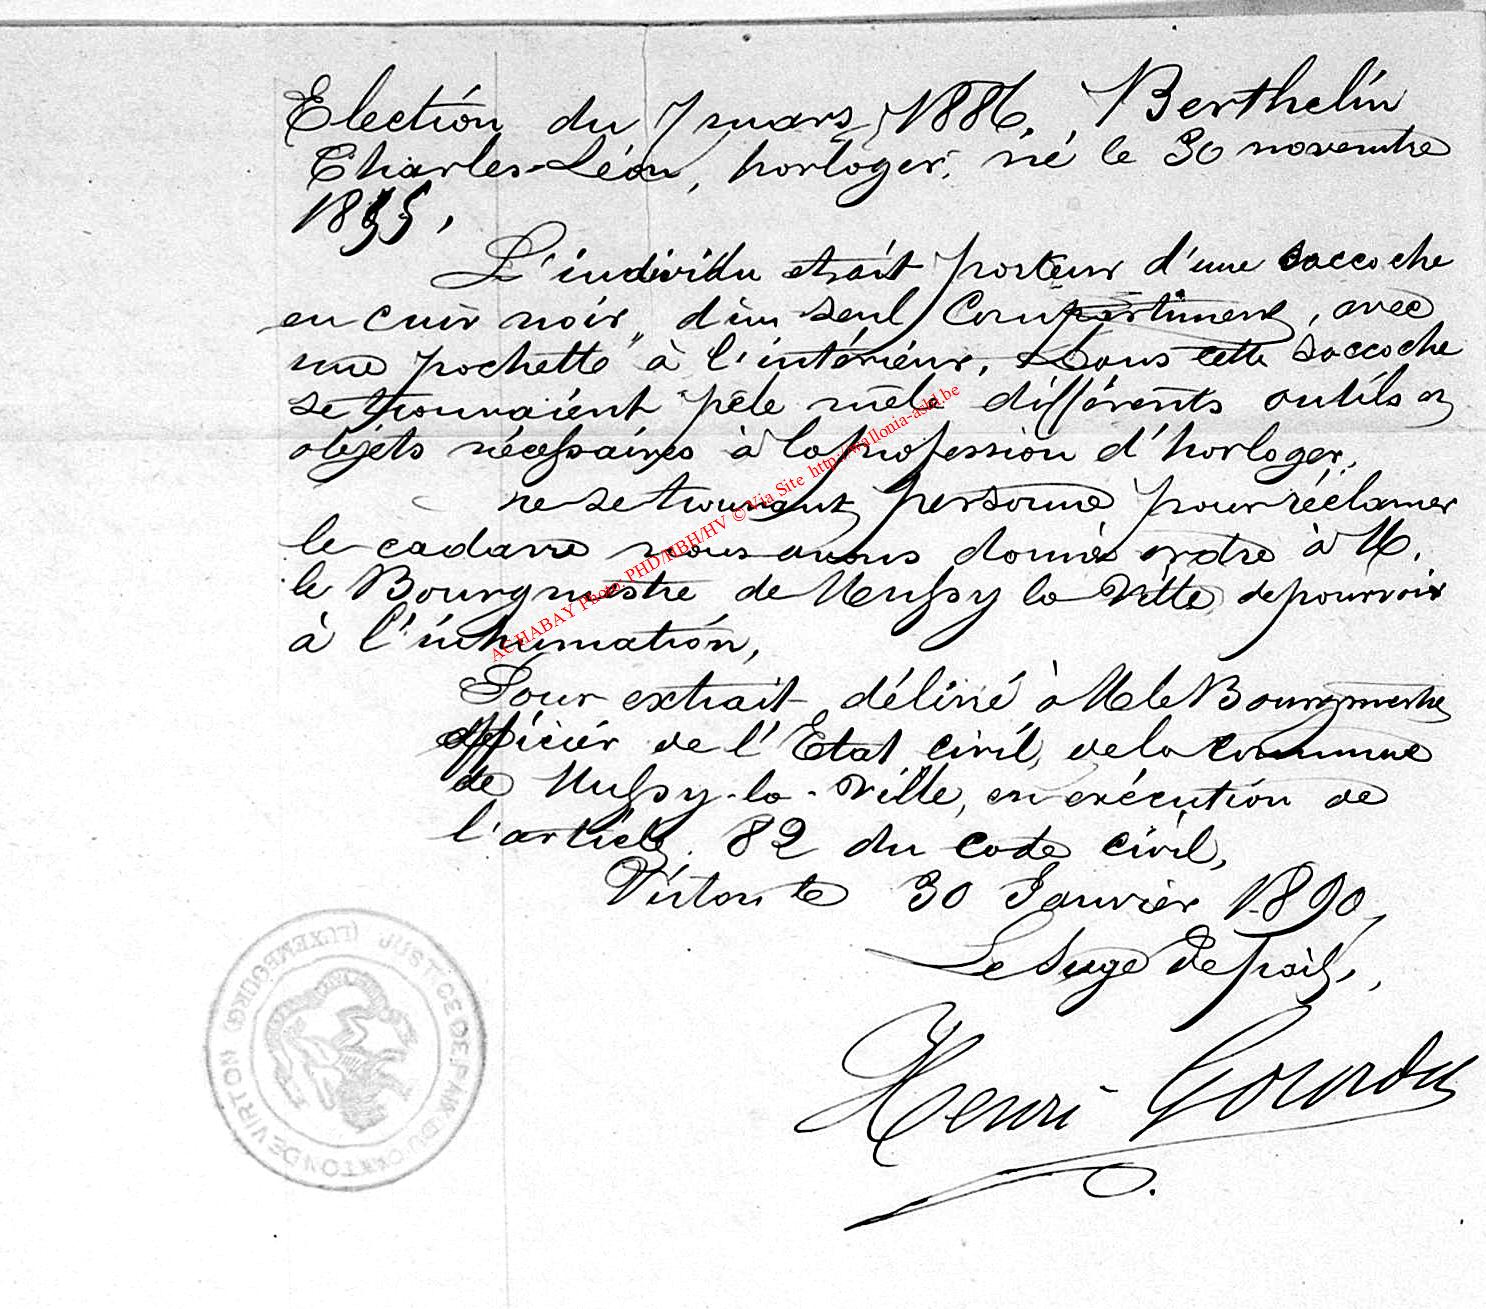 Election du 7 mars 1886, Berthelin
Charles-Léon, horloger, né le 30 novembre
1855,
L'individu etait porteur d'une saccoche
en cuir noir, d'un seul Compartiment, avec
une pochette à l'intérieur. Dans cette saccoche
se trouvaient pêle mêle différents outils et
objets nécessaires à la profession d'horloger.
ne se trouvant personne pour réclamer
le cadavre nous avons donné ordre à M.
le Bourgmestre de Mussy la Ville de pourvoir
à l'inhumation,
Pour extrait délivré à M le Bourgmestre
officier de l'Etat civil de la commune
de Mussy-la-Ville, en exécution de
l'article 82 du code civil,
Virton le 30 Janvier 1890,
Le Juge de paix,
Henri
JUSTICE DE PAIX DU CANTON DE VIRTON (LUXEMBOURG)
ACHABAY Photo. PHD/HBH/HV © Via Site http://wallonia-asbl.be